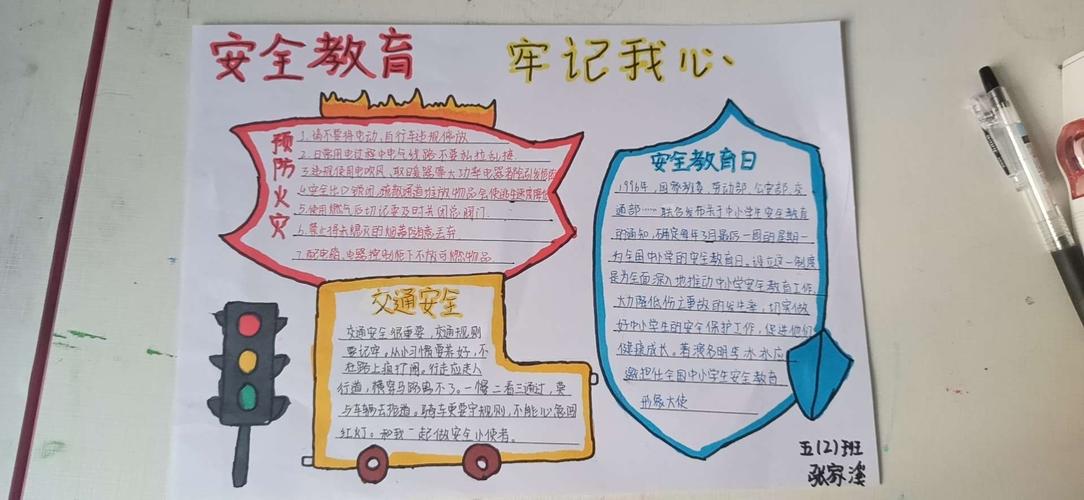 安全教育 牢记我心
预防火灾
1.请不要将电动、自行车违规停放
2.日常用电过程中电气线路不要私拉乱接
3.违规使用电吹风、取暖器等大功率电器
4.安全出口锁闭，疏散通道堆放物品会使逃生速度降低
5.使用燃气后切记要及时关闭总阀门
6.禁止将未熄灭的烟蒂随意丢弃
7.配电箱、电器控制柜下不放可燃物品
交通安全
交通安全很重要，交通规则
要记牢。从小习惯要养好，不
在路上疯打闹。行走应走人
行道，横穿马路离不了。一慢二看三通过，莫
与车辆去抢道。骑车更要守规则，不能心急闯
红灯。和我一起做安全小使者。
安全教育日
1996年，国家教委、劳动部、公安部、交
通部……联合发布关于中小学生安全教育
的通知，确定每年3月最后一周的星期一
为全国中小学的安全教育日。设立这一制度
是为全面深入地推动中小学安全教育工作，
大力降低伤亡事故的发生率，切实做
好中小学生的安全保护工作，促进他们
健康成长。著演名明李冰冰应
邀担任全国中小学生安全教育
形象大使
五(2)班
张家溪